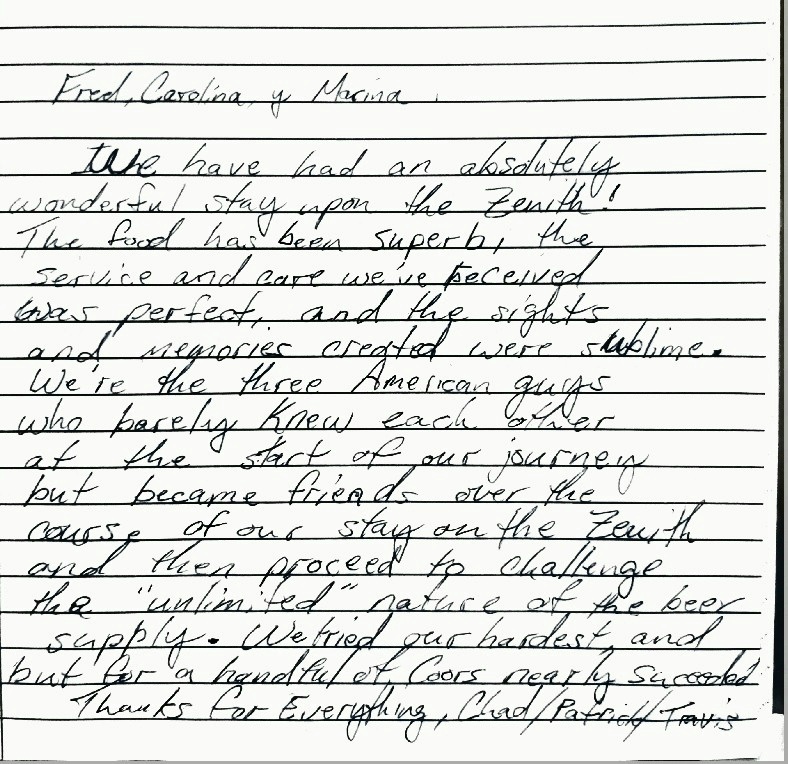 Fred, Carolina, y Marina
We have had an absolutely
wonderful stay upon the Zenith!
The food has been superb, the
service and care we've received
was perfect, and the sights
and memories created were sublime.
We're the three American guys
who barely knew each other
at the start of our journey
but became friends over the
course of our stay on the Zenith
and then proceed to challenge
the "unlimited" nature of the beer
supply. We tried our hardest, and
but for a handful of Coors nearly succeeded
Thanks for Everything, Chad/Patrick/Travis